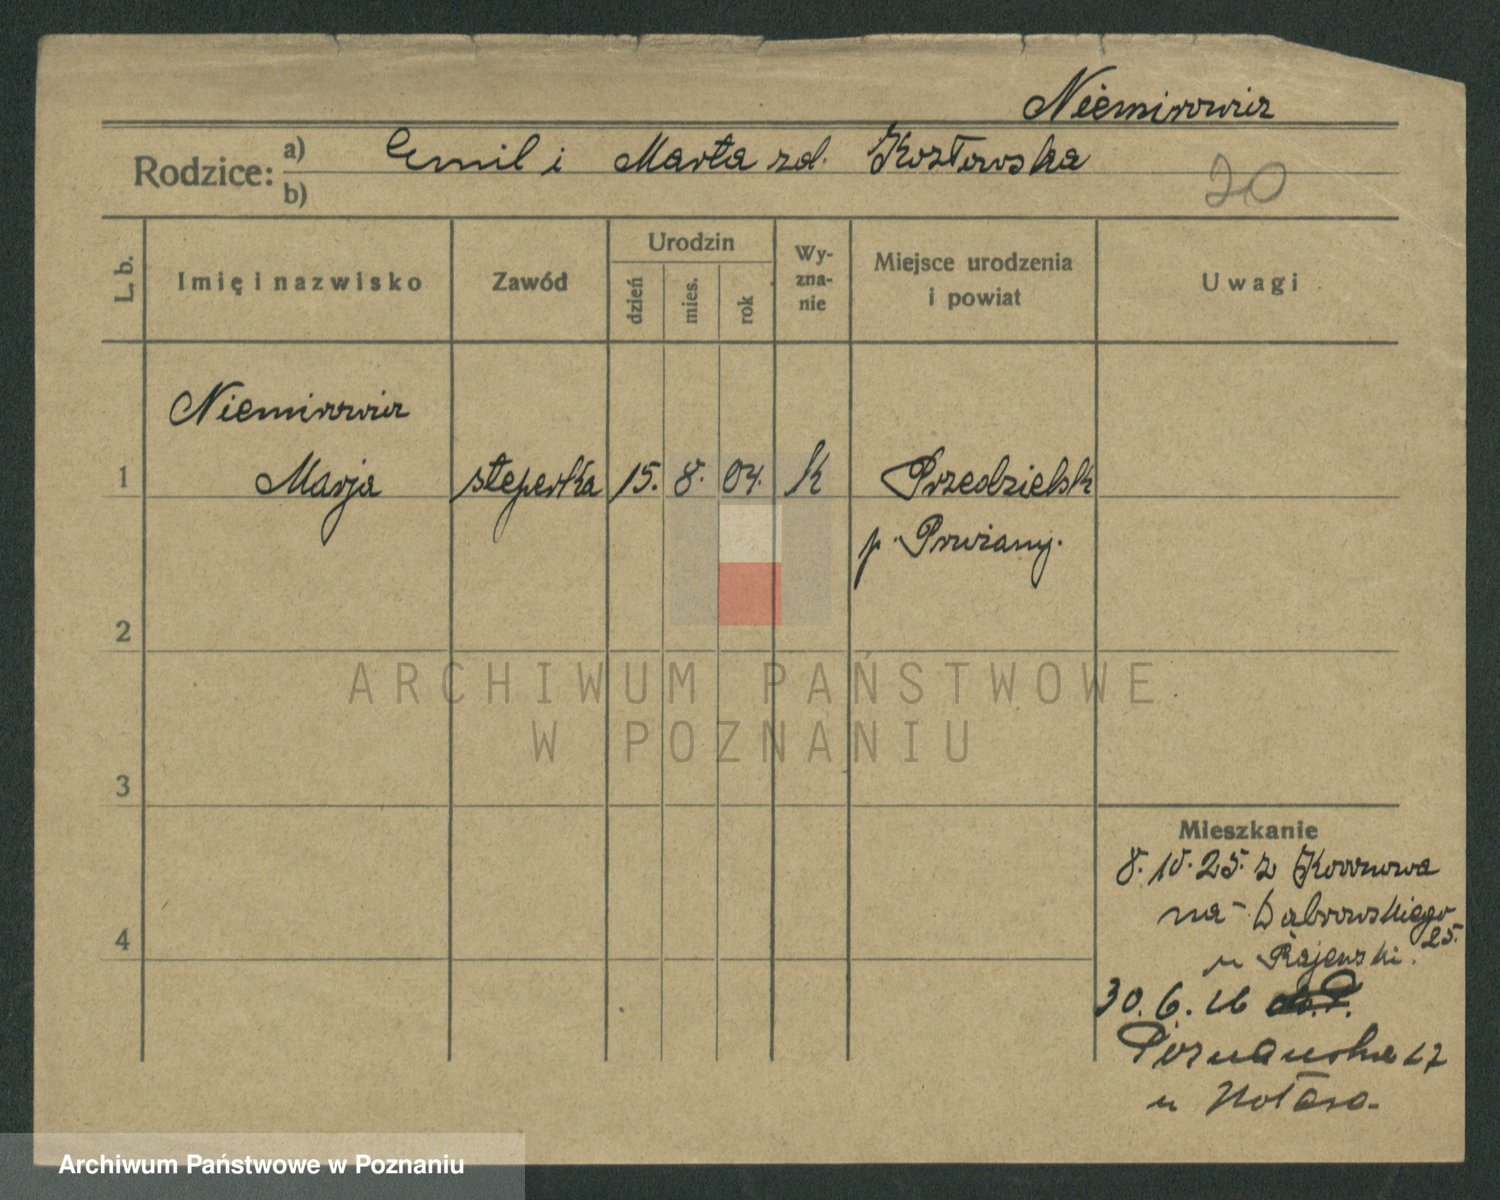 Niemirowicz
Rodzice: a) Emil i Marta zd. Kozłowska
b)
20
L. b.
Imię i nazwisko
Zawód
Urodzin
dzień
mies.
rok
Wy-
zna-
nie
Miejsce urodzenia
i powiat
Uwagi
Niemirowicz
1 Marja steperka 15. 8. 04. k Przedzielsk
p. Prużany.
2
3
4
Mieszkanie
8. 10. 25. z Koronowa
na Dąbrowskiego
25.
u Rajewski.
30. 6. 26
Poznańska 27
u
ARCHIWUM PAŃSTWOWE
W POZNANIU
Archiwum Państwowe w Poznaniu